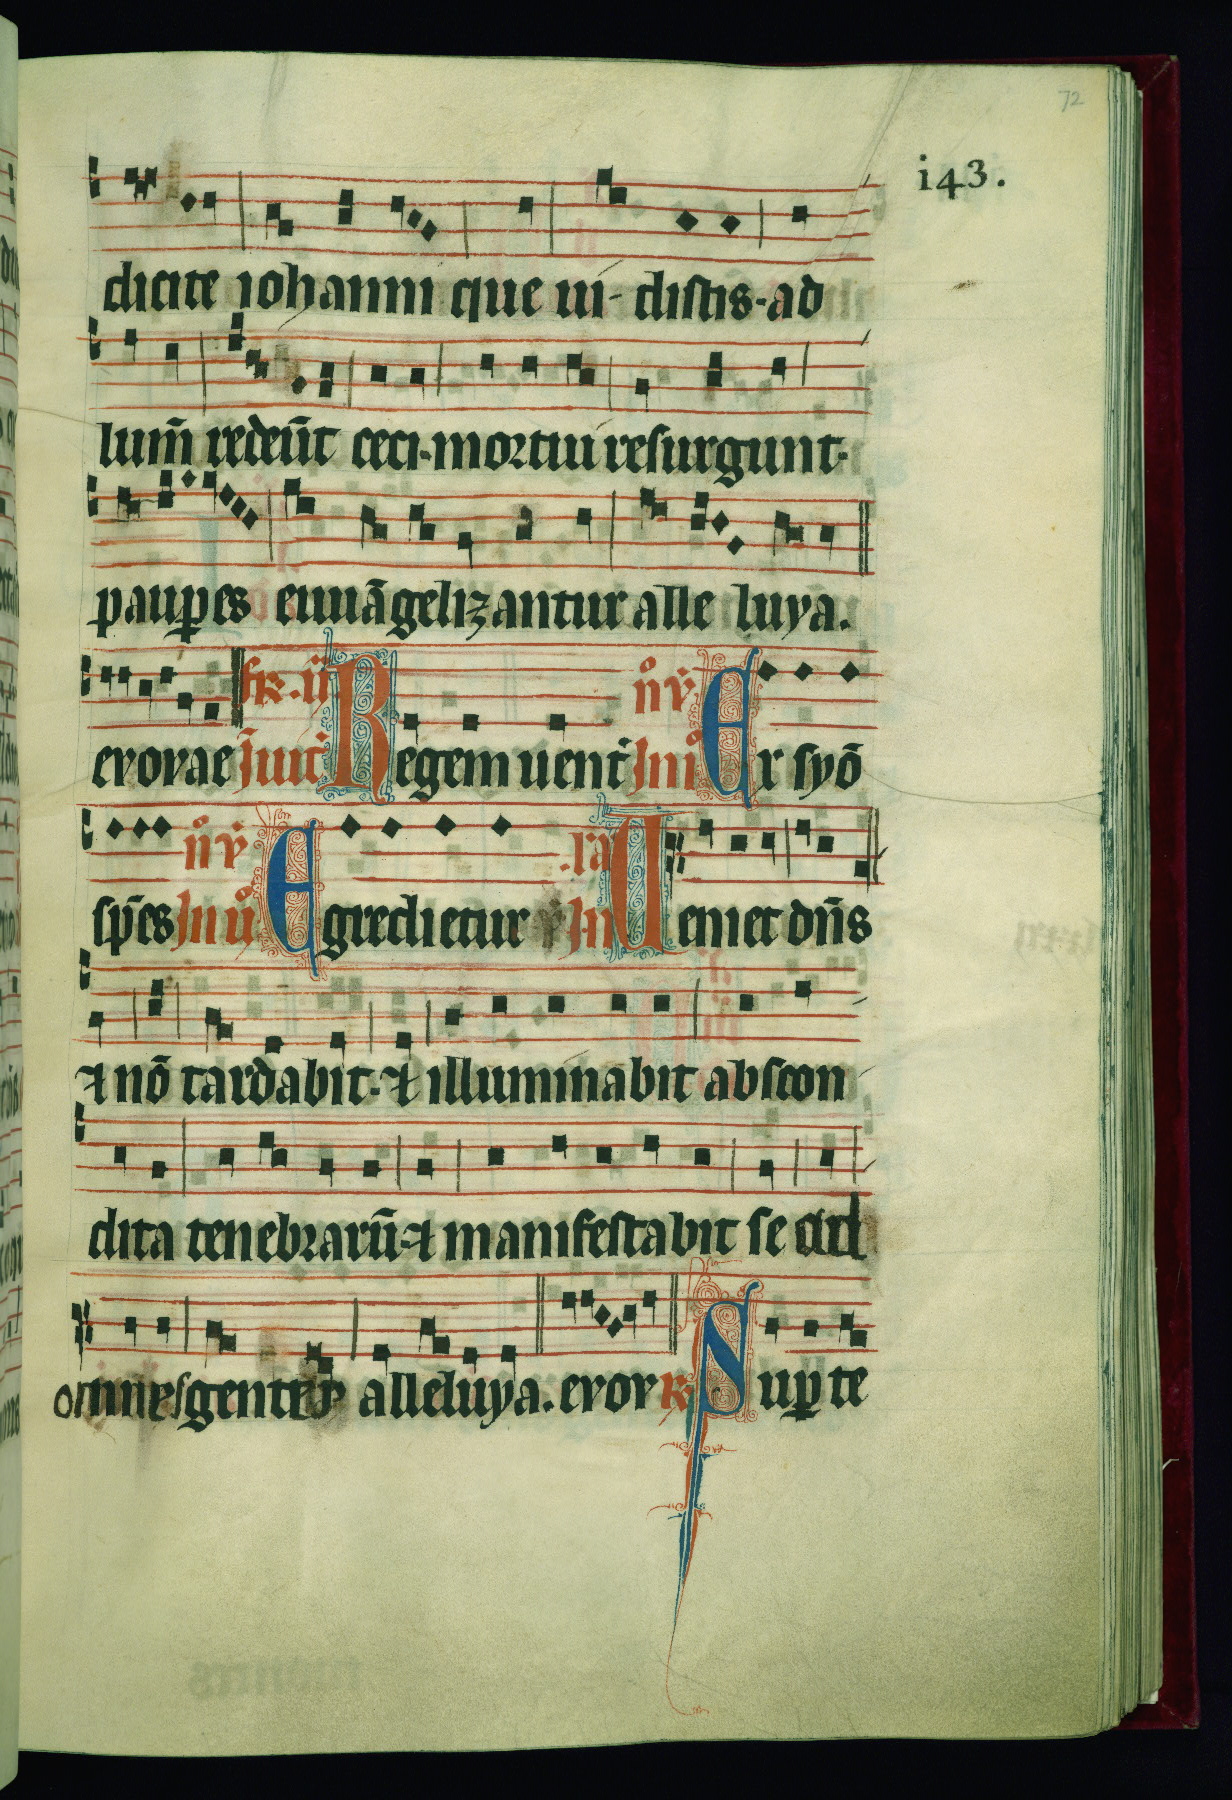 72
i43.
dicite iohanni que ui- distis. ad
lum̄ redeūt ceci. mortui resurgunt.
paup̲es euuāgelizantur alle luya.
fr. ij nõ v̄
evovae Īuit̄ Regem uent̄ In i Ex syō
nõ v̄ .la
sp̄es In ū Egredietur In Ueniet dn̄s
⁊ nō tardabit. ⁊ illuminabit abscon
dita tenebrarū ⁊ manifestabit se ad
omnes gentes alleluya. evov ℟ Nup̲ te